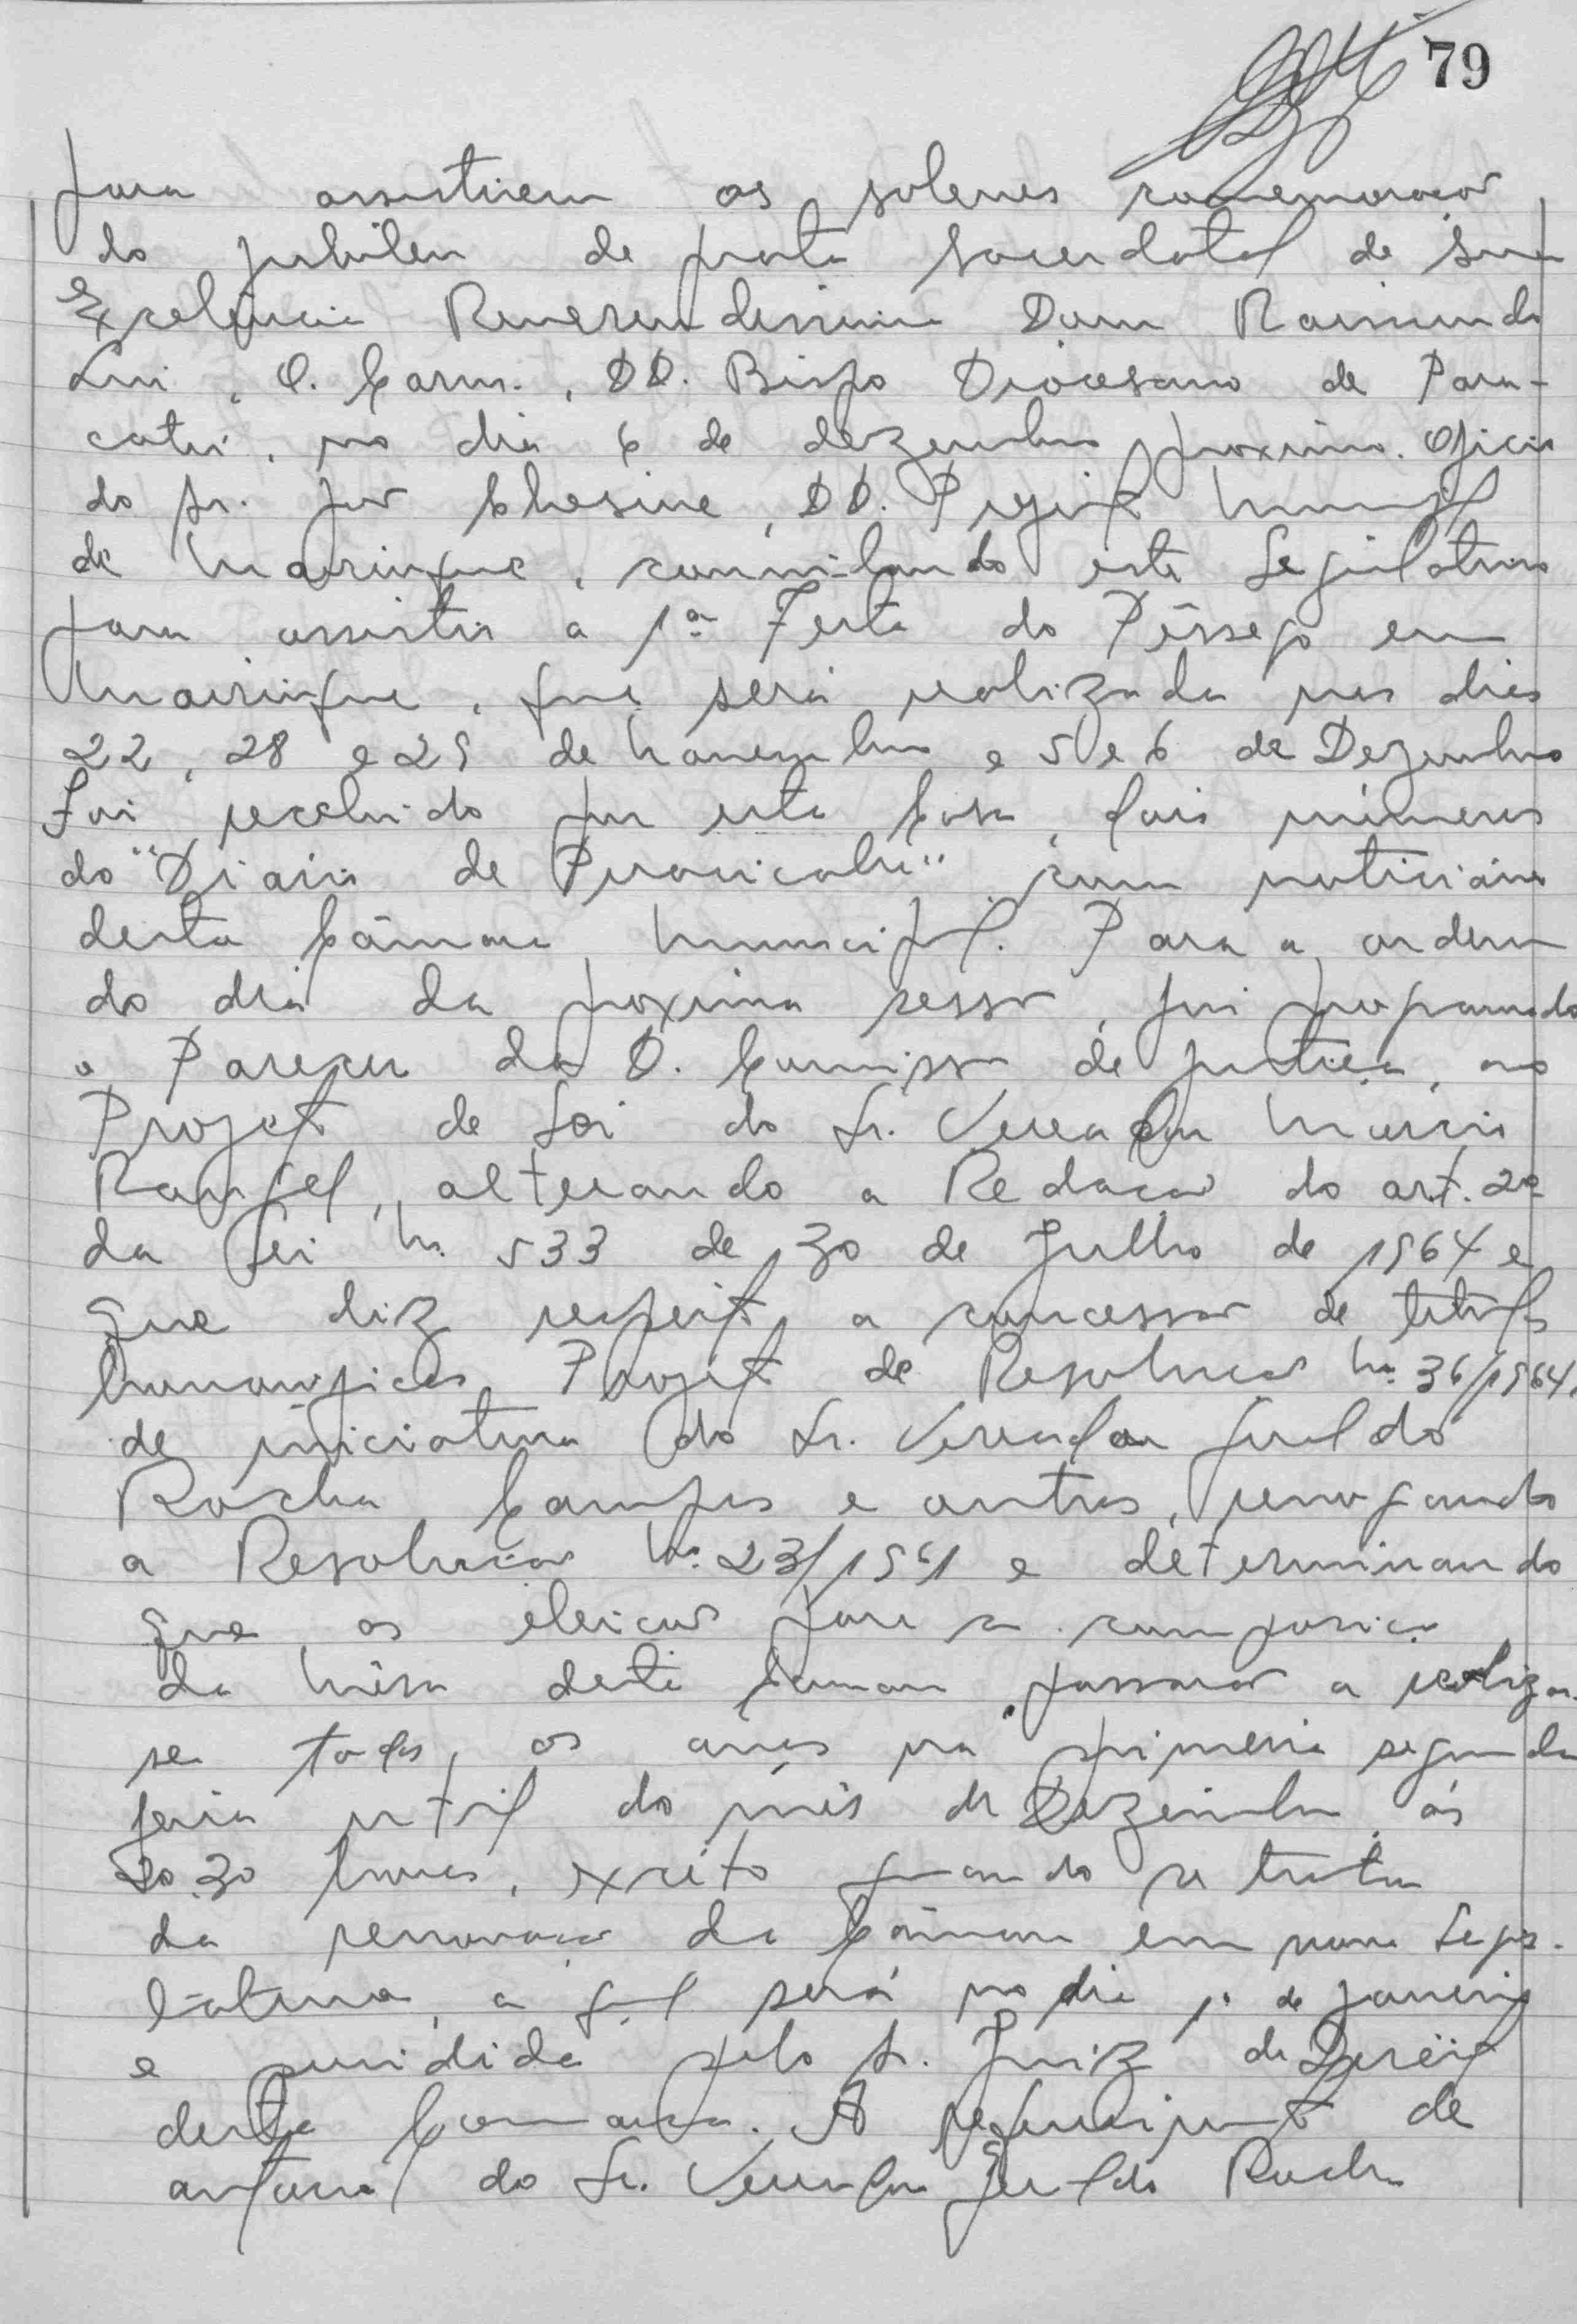 79
para assistirem as solenes comemoracor
do jubileu de prata sacerdotal de Sua
Excelencia Reverendissima Dom Raimundo
Lui, O. Carm., DD. Bispo Diocesano de Para-
catu, no dia 6 de dezembro proximo. Oficio
do Sr. DD. Prefeito Municipal
de Mairinque, convidando este Legislativo
para assistir a 1ª Festa do Pêssego em
Mairinque, que será realizada nos dias
22, 28 e 29 de Novembro e 5 e 6 de Dezembro
Foi recebido por esta Casa, dois números
do "Diario de Piracicaba" com noticiário
desta Câmara Municipal. Para a ordem
do dia da proxima sessor, foi programado
o Parecer da D. Comissor de Justiça, ao
Projeto de Lei do Sr. Vereador Marcio
Rangel, alterando a Redacor do art. 2º
da Lei Nº 533 de 30 de Julho de 1964 e
que diz respeito a concessor de titulos
honorificos, Projeto de Resolucor Nº 36/1964,
de iniciativa do Sr. Vereador Geraldo
Rocha Campos e outros, revogando
a Resolucor Nº 23/1961 e determinando
que as eleicor para a composicor
da Mêsa desta Camara passaror a realizar-
se todos os anos na primeira segunda
feria util do mês de Dezembro, ás
20.30 horas, exceto quando se tratar
da renovacor da Câmara em nova Legis-
latura, a qual será no dia 1º de janeiro
e presidida pelo Sr. Juiz de Direito
desta Comarca. A requerimento de
autoria do Sr. Vereador Geraldo Rocha